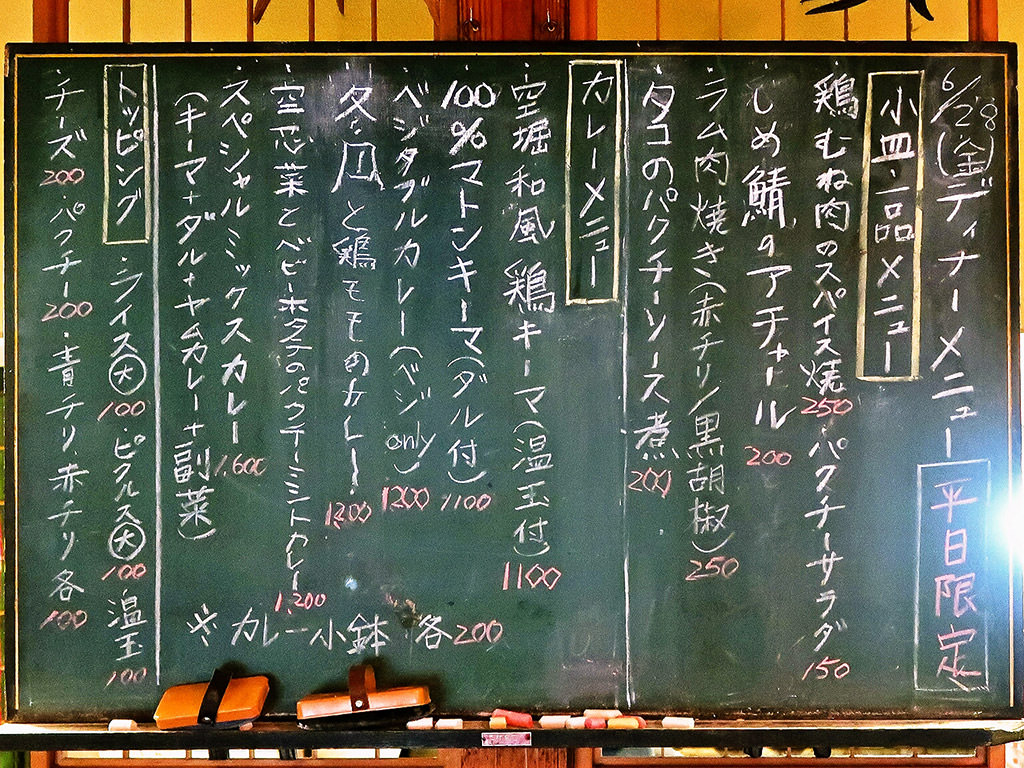 6/28(金)ディナーメニュー 平日限定
小皿・一品メニュー
鶏むね肉のスパイス焼250・パクチーサラダ150
しめ鯖のアチャール200
ラム肉焼き(赤チリ/黒胡椒)250
・タコのパクチーソース煮200
カレーメニュー
空堀和風 鶏キーマ(温玉付)1100
100%マトンキーマ(ダル付)1100
ベジタブルカレー(ベジonly)1200
冬瓜と鶏ももめカレー!1200
空芯菜とベビーホタテのパクチーミントカレー1,200
・スペシャルミックスカレー1,600
(キーマ+ダル+ヤムカレー+副菜)
※カレー小鉢 各200
トッピング ・ライス(大)100・ピクルス(大)100・温玉100
・チーズ200・パクチー200・青チリ・赤チリ各100